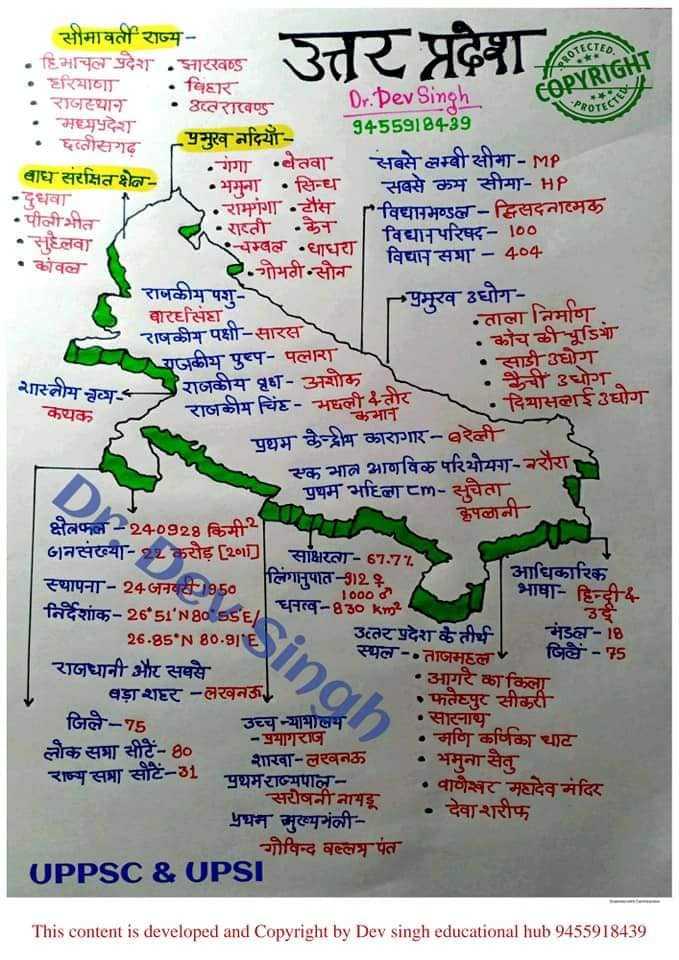 उत्तर प्रदेश
Dr. Dev Singh
9455918439
PROTECTED
COPYRIGHT
PROTECTED
सीमावर्ती राज्य-
• हिमाचल प्रदेश
• हरियाणा
• राजस्थान
• मध्यप्रदेश
• छत्तीसगढ़
• झारखण्ड
• बिहार
• उत्तराखण्ड
प्रमुख नदियाँ-
• गंगा
• यमुना
• रामगंगा
• राप्ती
• चम्बल
• गोमती
• बेतवा
• सिन्ध
• टौंस
• केन
• घाघरा
• सोन
बाघ संरक्षित क्षेत्र-
• दुधवा
• पीलीभीत
• सुहेलवा
सबसे लम्बी सीमा- MP
सबसे कम सीमा- HP
विधानमण्डल - द्विसदनात्मक
विधानपरिषद- 100
विधान सभा - 404
प्रमुख उद्योग-
• ताला निर्माण
• काँच की चूडियाँ
• साडी उद्योग
• कैंची उद्योग
• दियासलाई उद्योग
राजकीय पशु-
बारहसिंघा
राजकीय पक्षी-सारस
राजकीय पुष्प- पलाश
राजकीय वृक्ष- अशोक
राजकीय चिंह- मछली & तीर
कमान
शास्त्रीय नृत्य-
कथक
प्रथम केन्द्रीय कारागार- बरेली
एक मात्र आणविक परियोजना-नरौरा
प्रथम महिला CM- सुचेता
कृपलानी
क्षेत्रफल -240928 किमी²
जनसंख्या- 22 करोड़ [2011]
स्थापना- 24 जनवरी 1950
निर्देशांक- 26°51'N 80°55'E/
26.85°N 80.91°E
साक्षरता- 67.7%
लिंगानुपात-912 ♀
1000 ♂
घनत्व-830 km²
राजधानी और सबसे
बड़ा शहर -लखनऊ
जिले-75
लोक सभा सीटें- 80
राज्य सभा सीटें-31
उच्च न्यायालय
- प्रयागराज
शाखा-लखनऊ
प्रथम राज्यपाल-
सरोजनी नायडू
प्रथम मुख्यमंत्री-
गोविन्द बल्लभ पंत
आधिकारिक
भाषा- हिन्दी &
उर्दू
मंडल-18
जिलें-75
उत्तर प्रदेश के तीर्थ
स्थल-
• ताजमहल
• आगरे का किला
• फतेहपुर सीकरी
• सारनाथ
• मणि कर्णिका घाट
• यमुना सेतु
• वाणेश्वर महादेव मंदिर
• देवा शरीफ
Dr. Dev Singh
UPPSC & UPSI
This content is developed and Copyright by Dev singh educational hub 9455918439